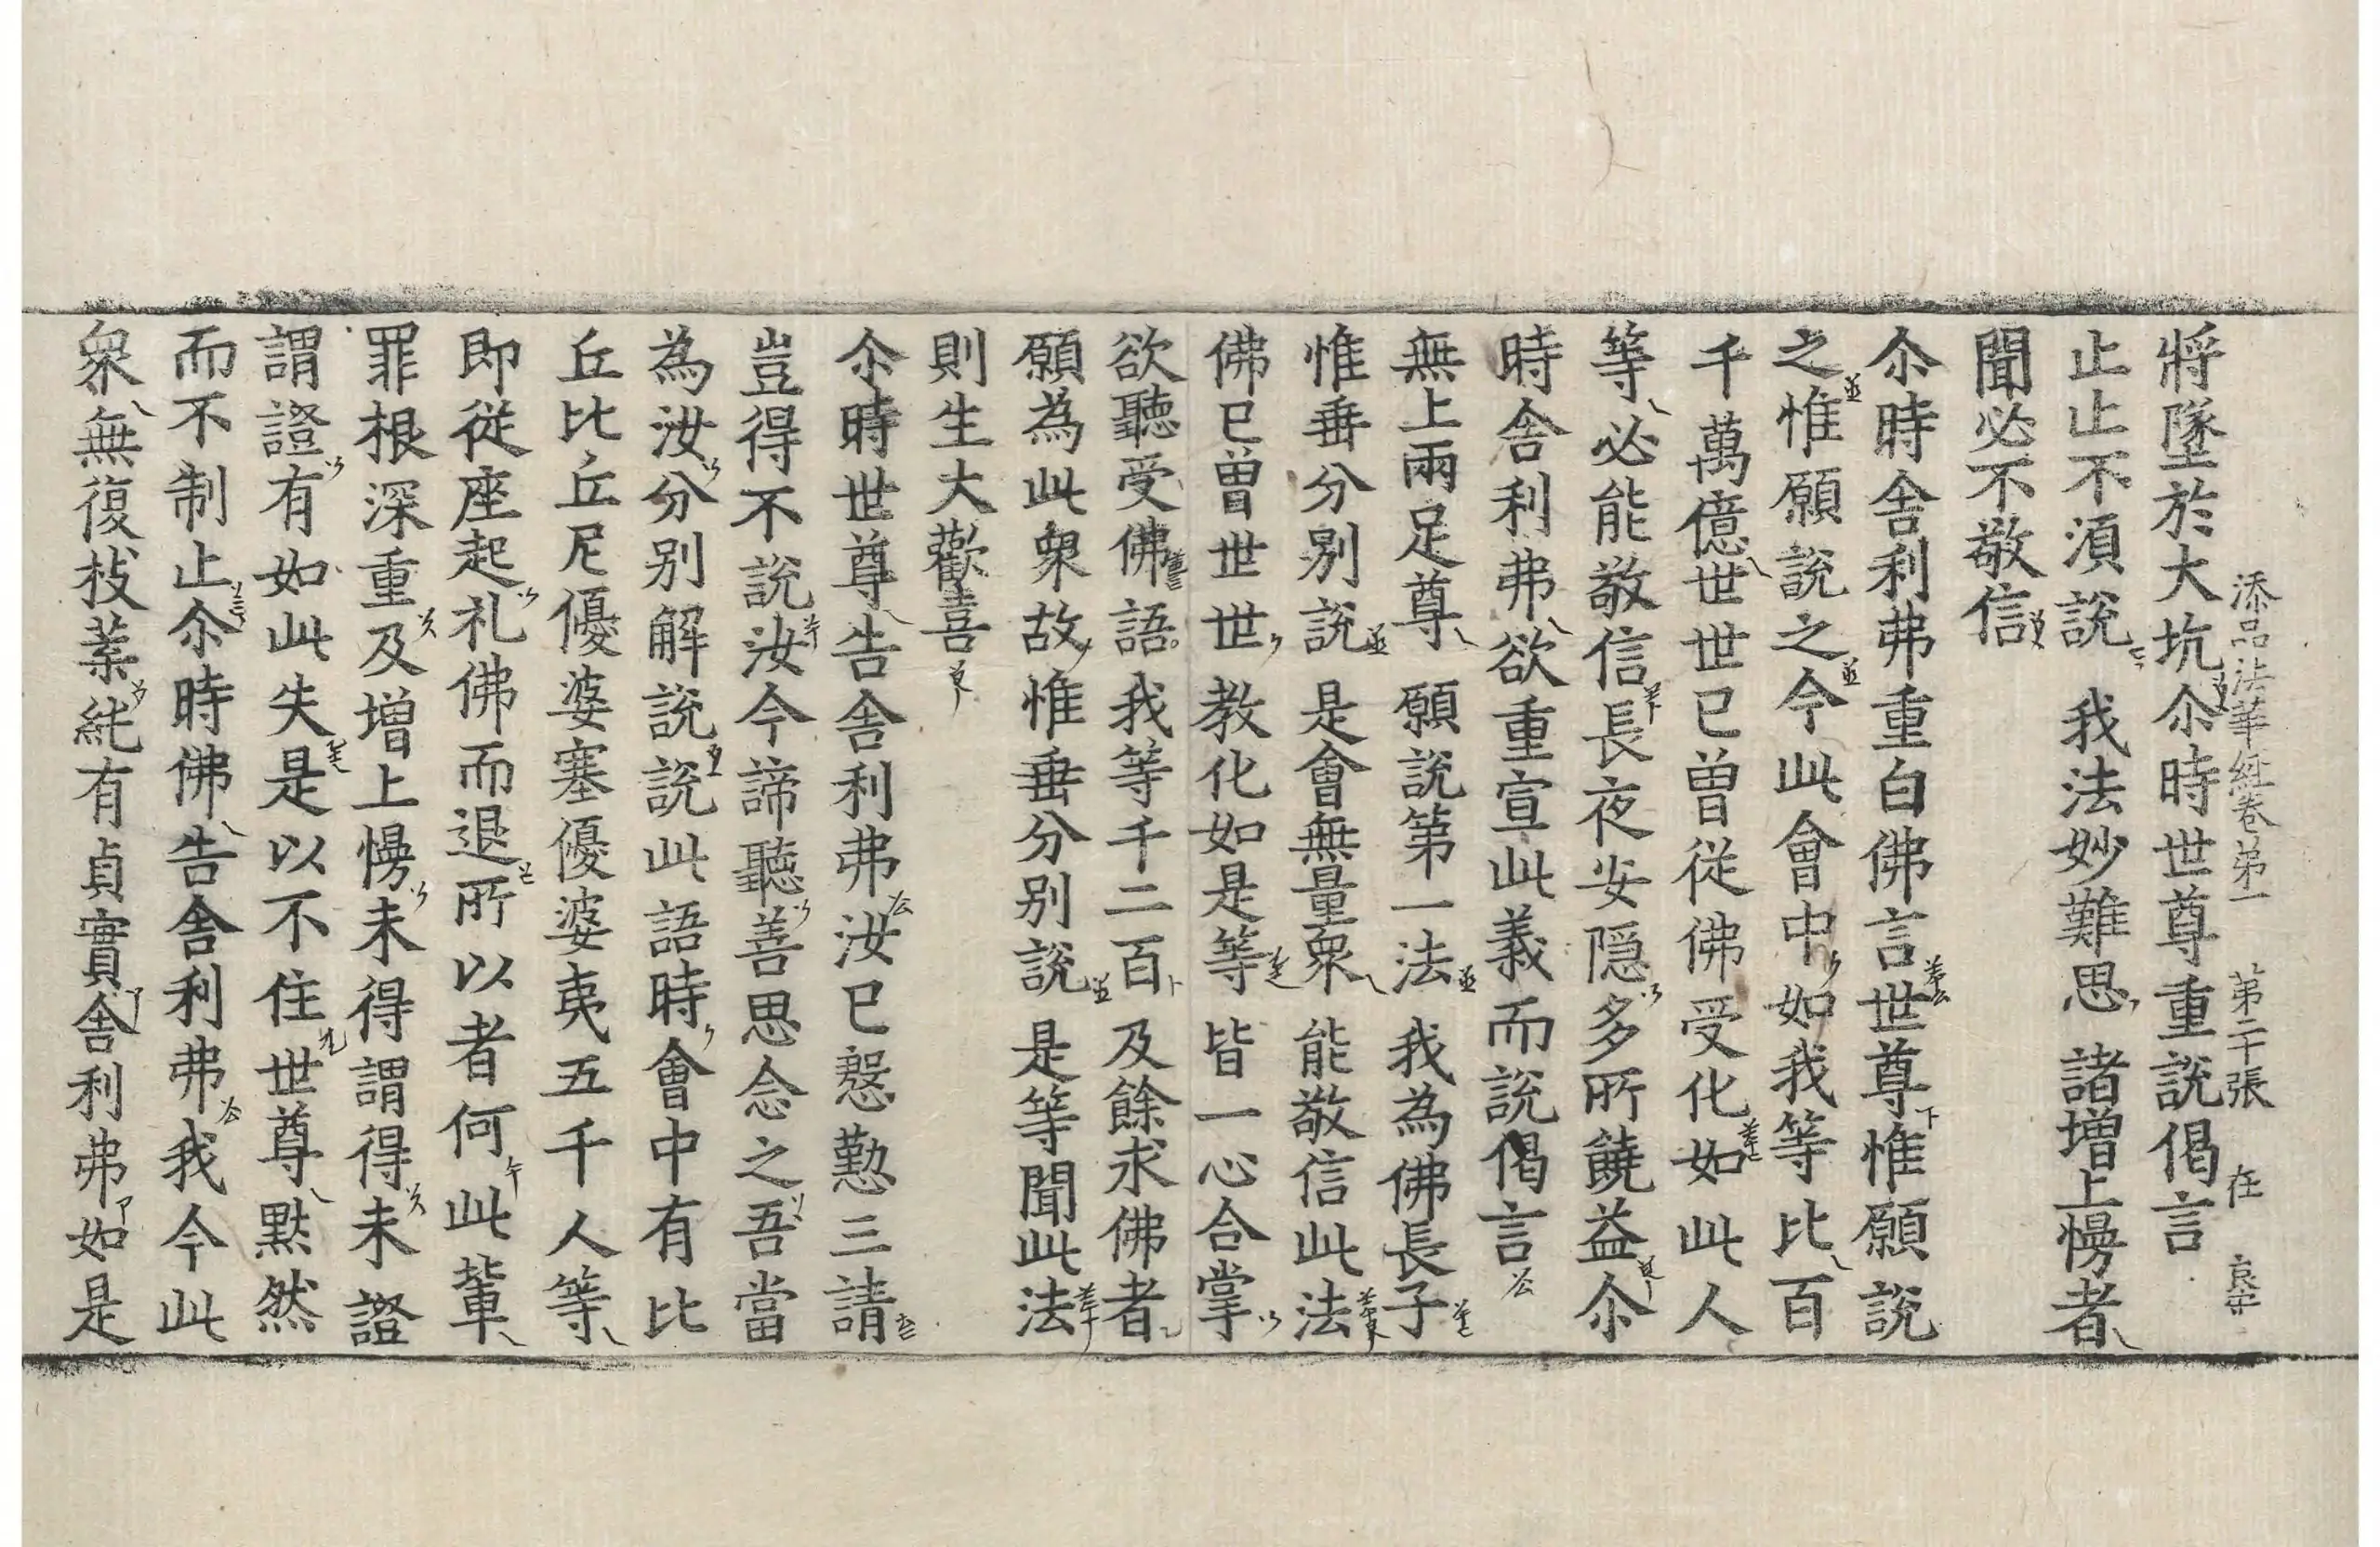 添品法華経卷第一 第二十張 在
將墜於大坑尒時世尊重說偈言
止止不湏說 我法妙難思 諸增上慢者
聞必不敬信
尒時舎利弗重白佛言世尊惟願說
之惟願說之今此會中如我等比百
千萬億世世已曽從佛受化如此人
等必能敬信長夜安隠多所饒益尒
時舎利弗欲重宣此義而說偈言
無上兩足尊 願說第一法 我為佛長子
惟垂分別說 是會無量衆 能敬信此法
佛已曽世世 教化如是等 皆一心合掌
欲聽受佛語 我等千二百 及餘求佛者
願為此衆故 惟垂分別說 是等聞此法
則生大歡喜
尒時世尊告舎利弗汝已慇懃三請
豈得不說汝今諦聽善思念之吾當
為汝分別解說說此語時會中有比
丘比丘尼優婆塞優婆夷五千人等
即從座起礼佛而退所以者何此軰
罪根深重及增上慢未得謂得未證
謂證有如此失是以不住世尊黙然
而不制止尒時佛告舎利弗我今此
衆無復枝葉純有貞實舎利弗如是